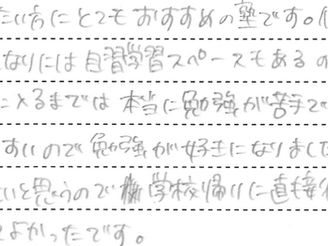 たい方にとてもおすすめの塾です。
なりには自習学習スペースもあるの
に入るまでは本当に勉強が苦手で
すいので勉強が好きになりまして
いと思うので学校帰りに直接行
てよかったです。